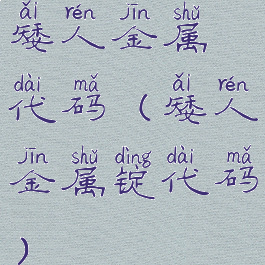 ǎi rén jīn shǔ
矮人金属
dài mǎ ǎi rén
代码(矮人
jīn shǔ dìng dài mǎ
金属锭代码
)